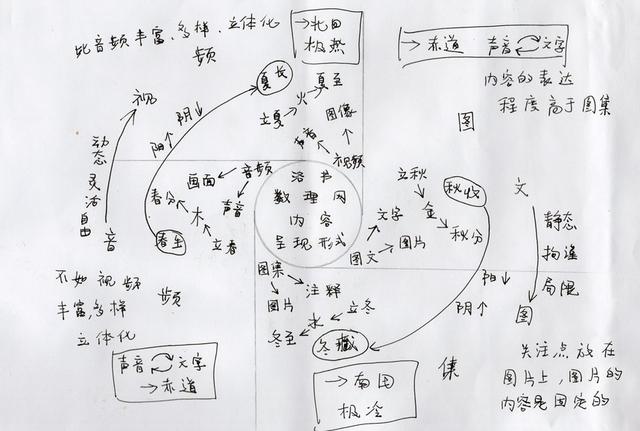 比音频丰富、多样、立体化
频
→北回
极热
→赤道 声音 文字
内容的表达
程度高于图集
图
夏长
夏至
火
立夏
图像
声音
视频
视
阴↓
阳↑
动态
灵活
自由
音
画面
音频
春分
声音
木
立春
春生
洛书
数理网
内容
呈现形式
立秋
秋收
金
秋分
文字
图片
图文
文
静态
拘谨
局限
图
阳↓
阴↑
不如视频
丰富,多样
立体化
频
图集
注释
图片
水
立冬
冬至
冬藏
声音 文字
→赤道
→南回
极冷
集
关注点放在
图片上,图片的
内容是固定的